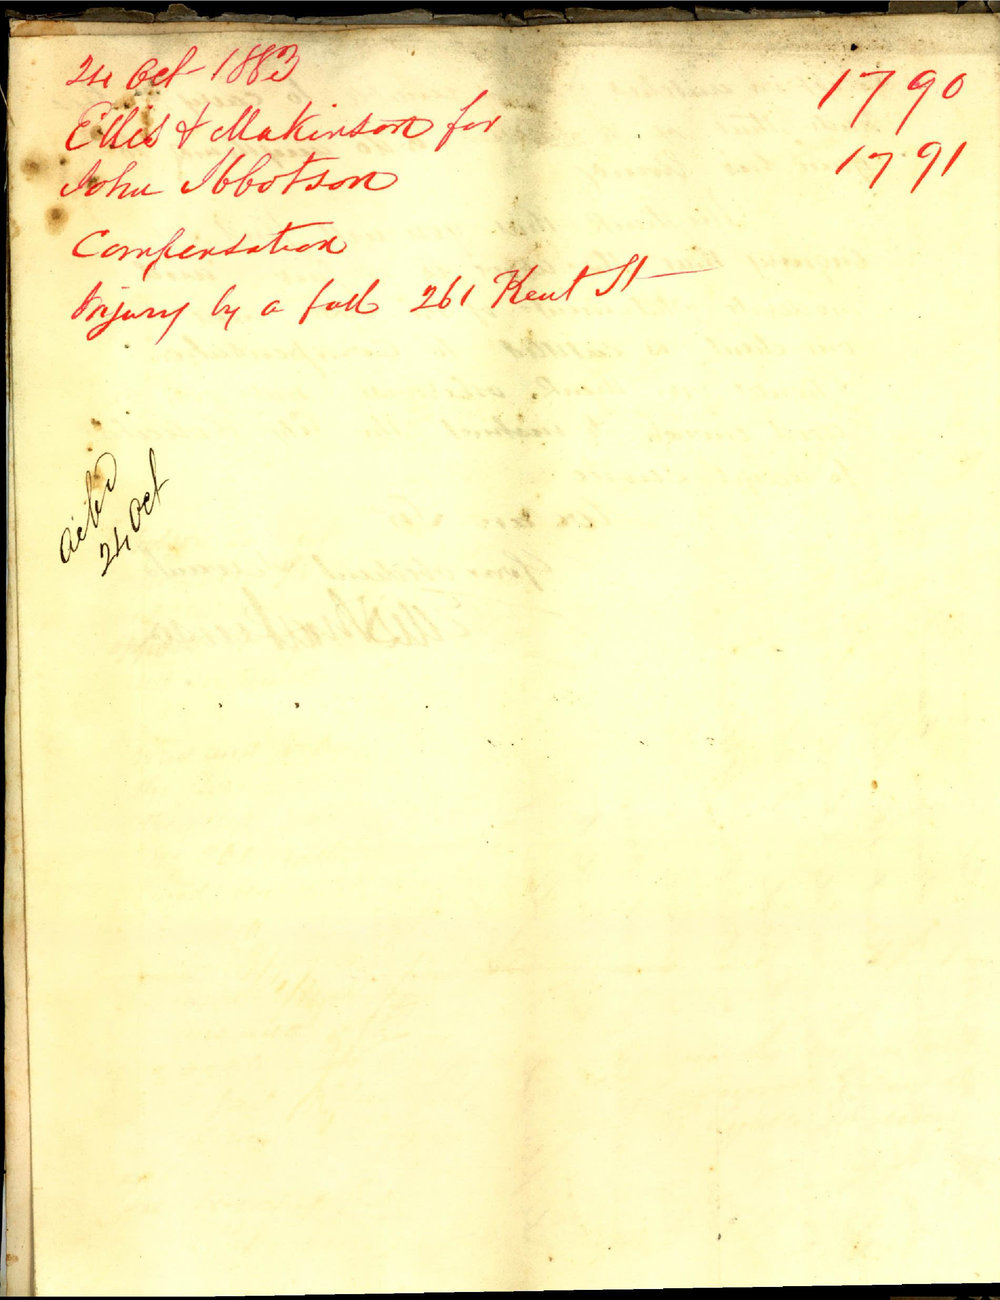 24 Oct 1883
1790
Ellis & Makinson for
1791
John Ibbotson
Compensation
Injury by a fall 261 Kent St
ackd
24 Oct